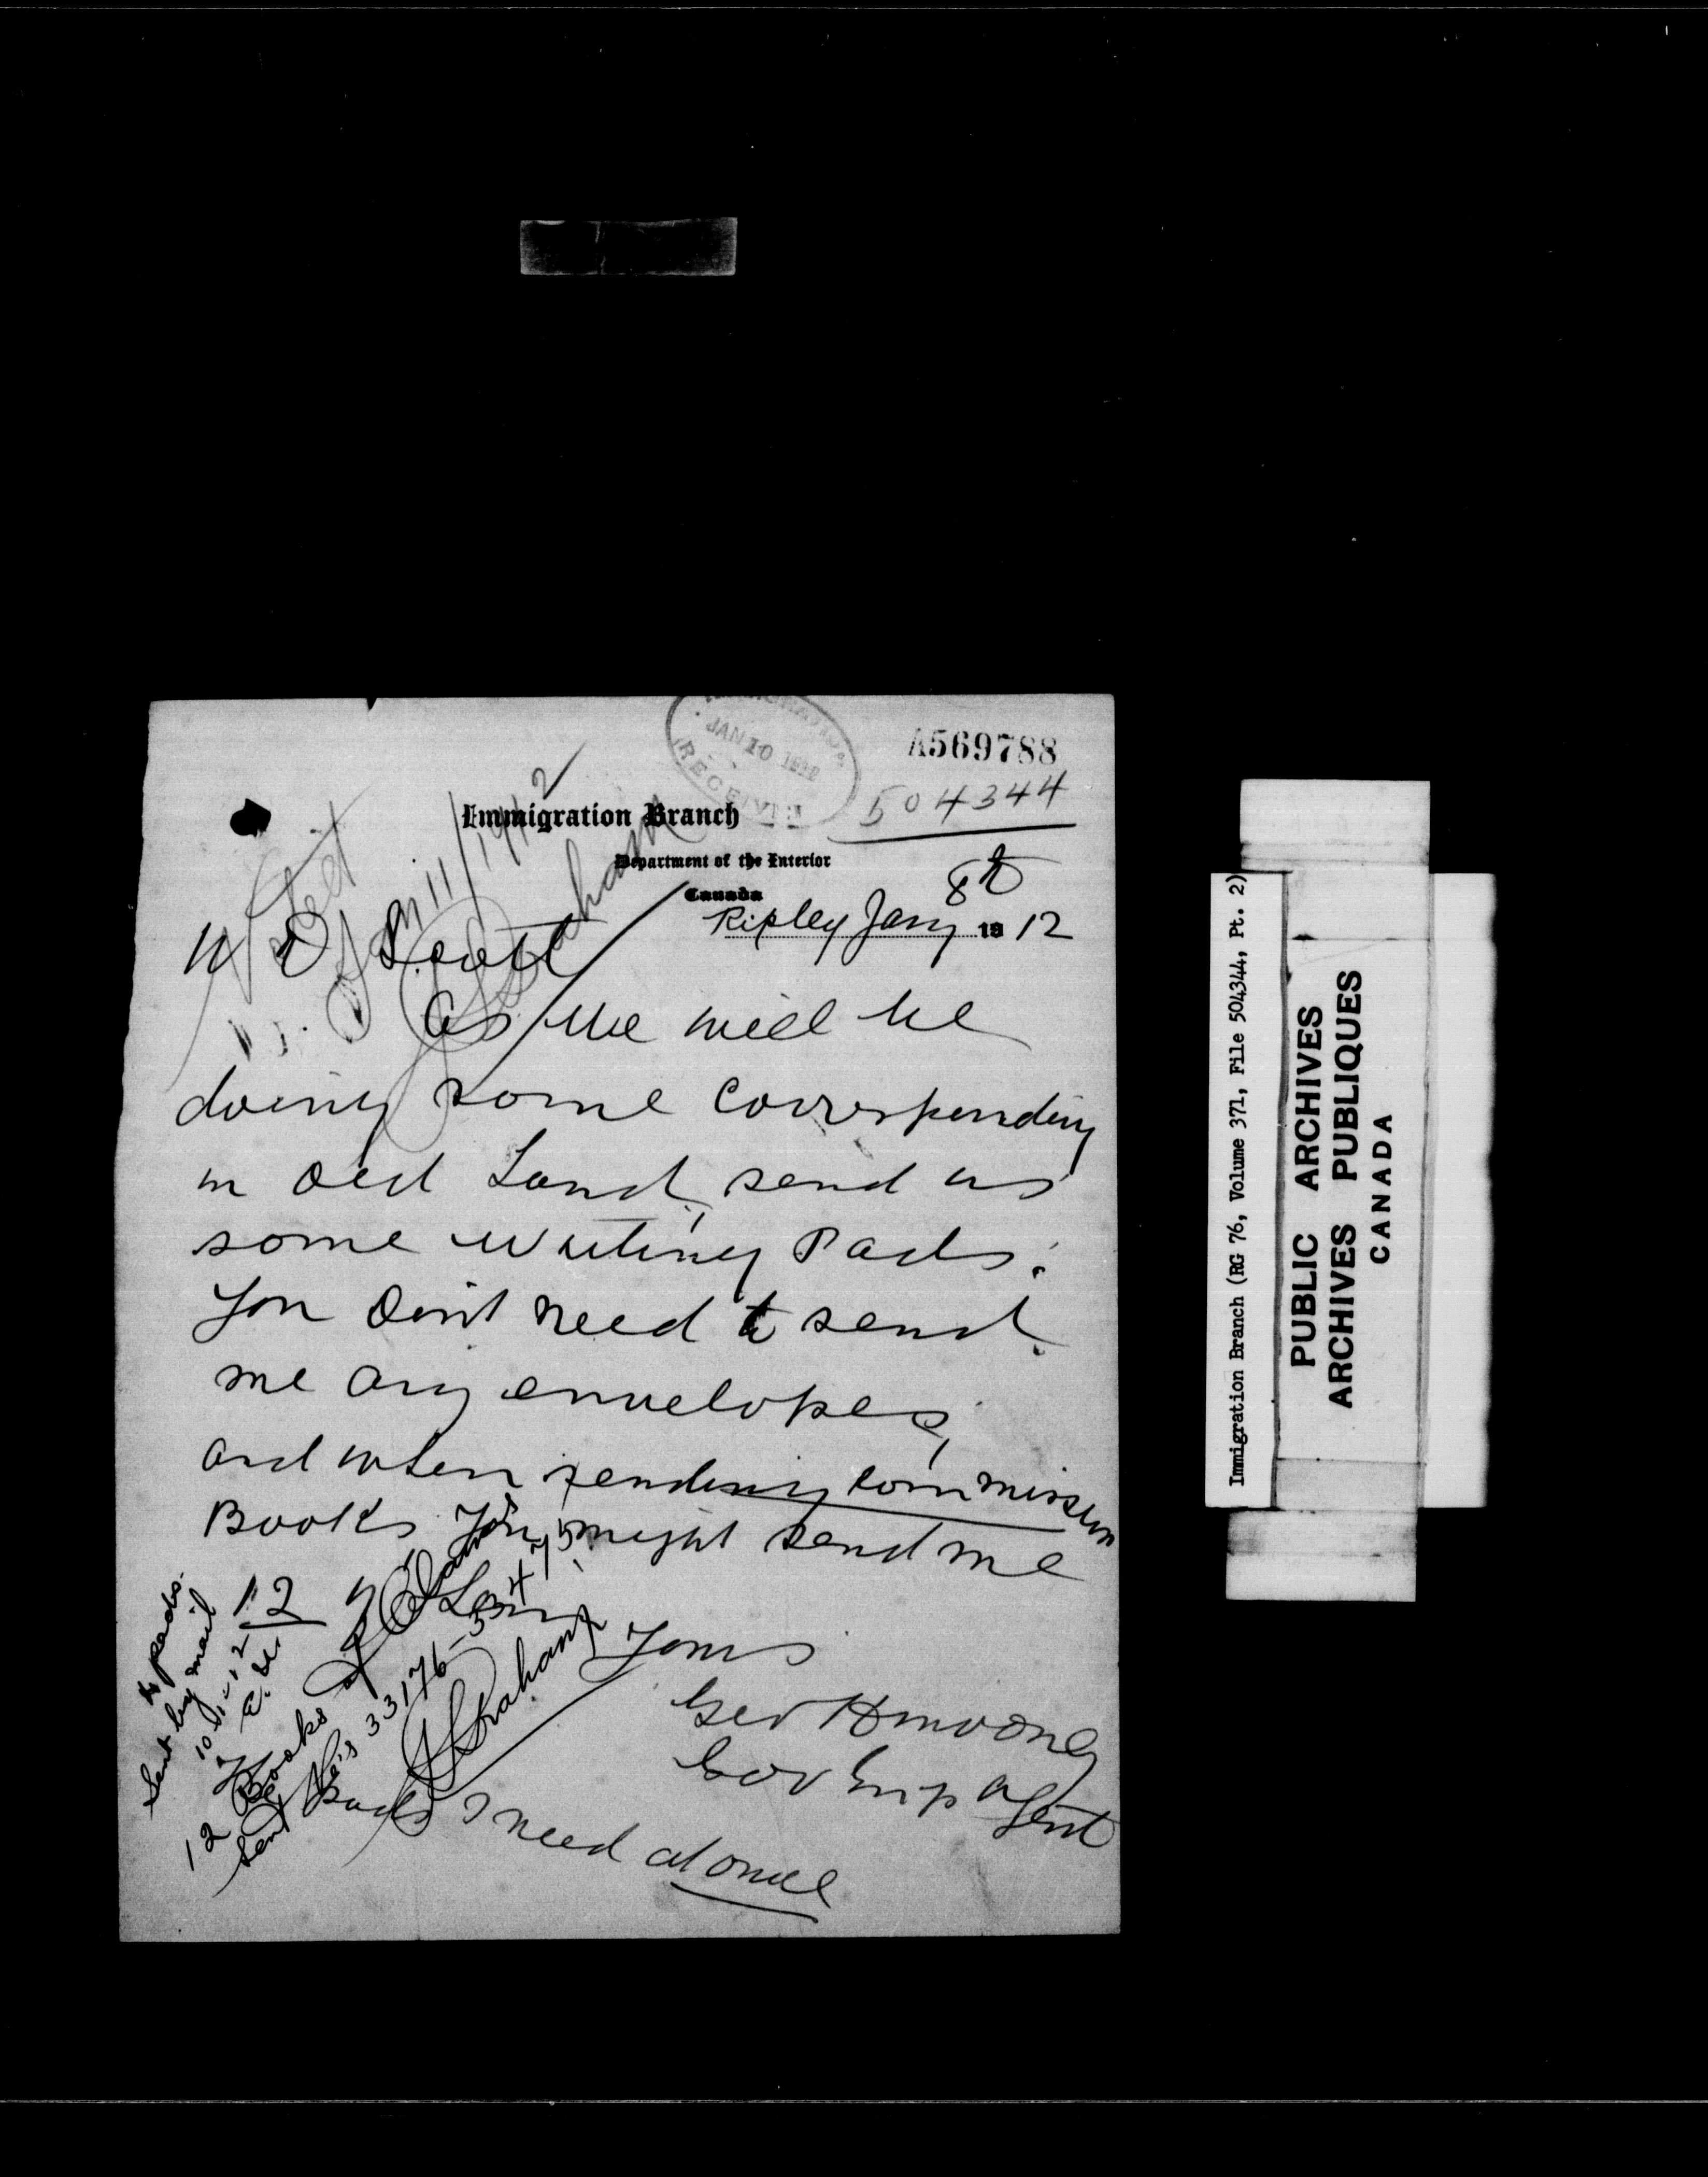 IMMIGRATION
JAN 10 1912
RECEIVED
A569788
504344
Immigration Branch
Department of the Interior
Canada
Ripley Jany 8th 1912
Noted
Jan 11/1912
W D Scott
As we will be
doing some corresponding
in Old Land, send us
some writing Pads.
You Dont need to send
me any envelopes,
and when sending commission
Books You might send me
12
Yours
Geo H
Gov Emp Agent
Pads I need at once
pads.
Sent by mail
10-1-12
12 Books
Sent No's 33176-33475
Immigration Branch (RG 76, Volume 371, File 504344, Pt. 2)
PUBLIC ARCHIVES
ARCHIVES PUBLIQUES
CANADA